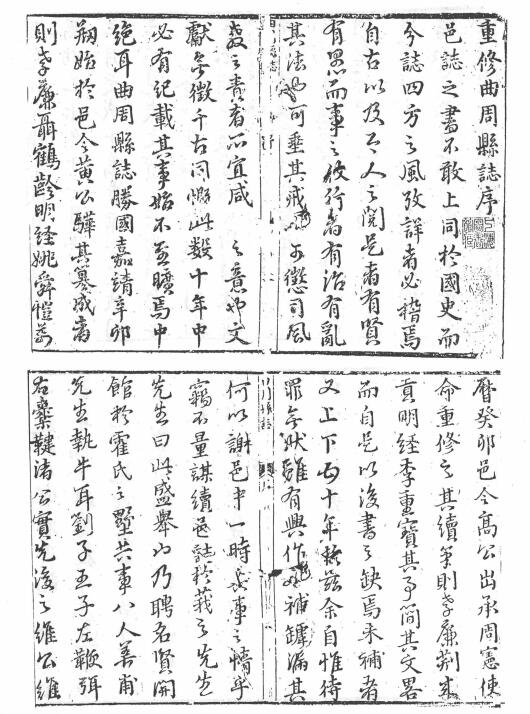 重修曲周縣誌序
邑誌之書不敢上同於國史而
今誌四方之風攷詳者必稽焉
自古以及今人之閱是者有賢
有愚而事之彼行者有治有亂
其法也可垂其戒也可懲司風
教之責者所宜咸之意也文
獻無徵千古同慨此數十年中
必有記載其事始不至曠焉中
絕耳曲周縣誌勝國嘉靖辛卯
刱始於邑令黃公驊其纂成者
則孝廉聶鶴齡明經姚舜愷萬
曆癸卯邑令高公出承周憲使
命重修之其續筆則孝廉荊
貢明經李重寶其事簡其文畧
而自是以後書之缺焉未補者
又上下五十年於茲余自惟待
罪無狀雖有興作補罅漏其
何以謝邑中一時長事之情乎
竊不量謀續邑誌於莪之先生
先生曰此盛舉也乃聘名賢開
館於霍氏之墅共事八人善甫
先生執牛耳劉子王子左鞭弭
右櫜鞬諸公實先後之維公維